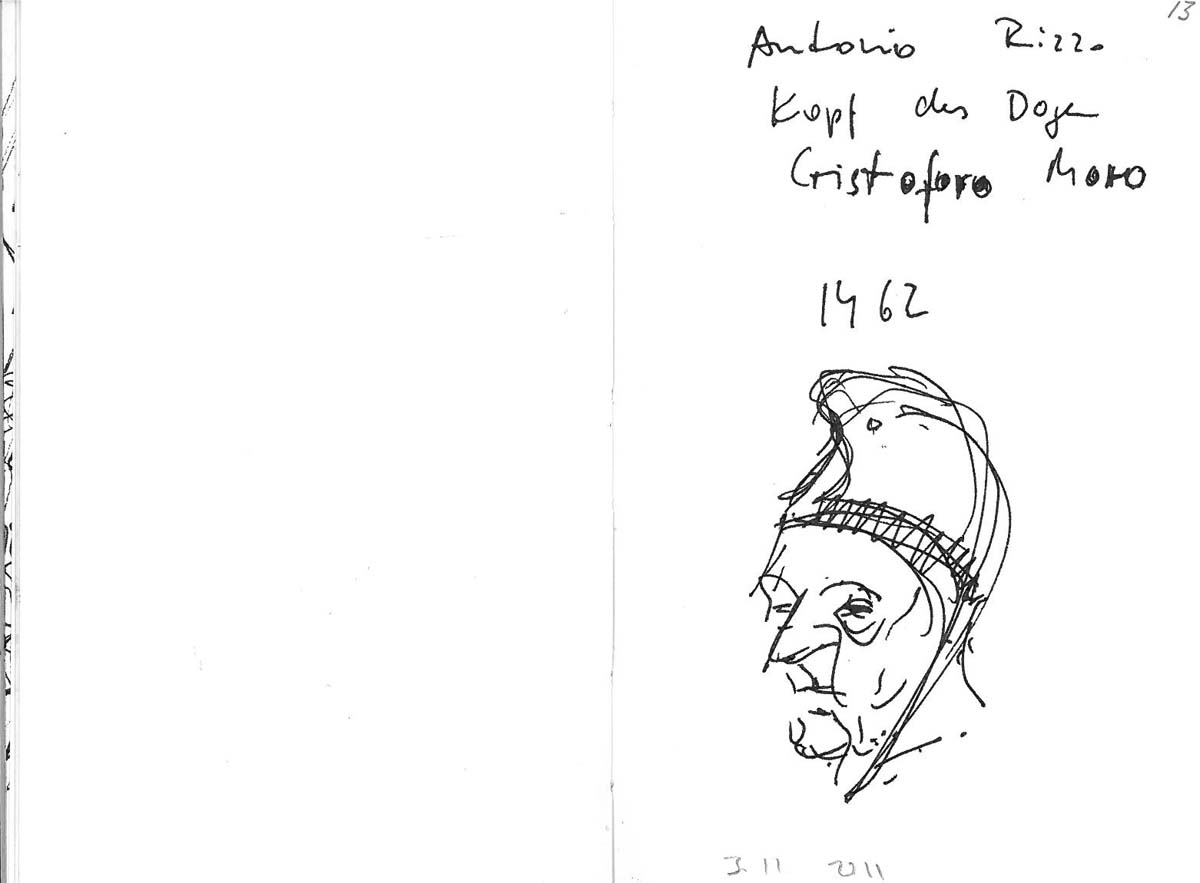 13
Antonio Rizzo
Kopf des Dogen
Cristoforo Moro
1462
3.11 2011